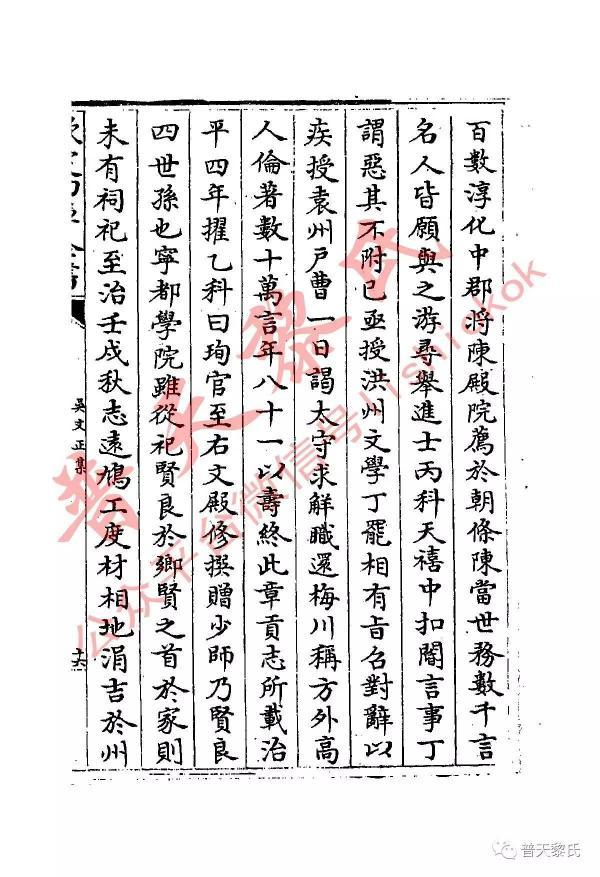 百數淳化中郡將陳殿院薦於朝條陳當世務數千言
名人皆願與之游尋舉進士丙科天禧中扣閽言事丁
謂惡其不附已亟授洪州文學丁罷相有旨名對辭以
疾授袁州戶曹一日謁太守求解職還梅川稱方外高
人倫著數十萬言年八十一以壽終此章貢志所載治
平四年擢乙科曰珣官至右文殿修撰贈少師乃賢良
四世孫也寧都學院雖從祀賢良於鄉賢之首於家則
未有祠祀至治壬戌秋志遠鳩工度材相地涓吉於州
吳文正集
十六
普天黎氏
公众平台微信号
普天黎氏